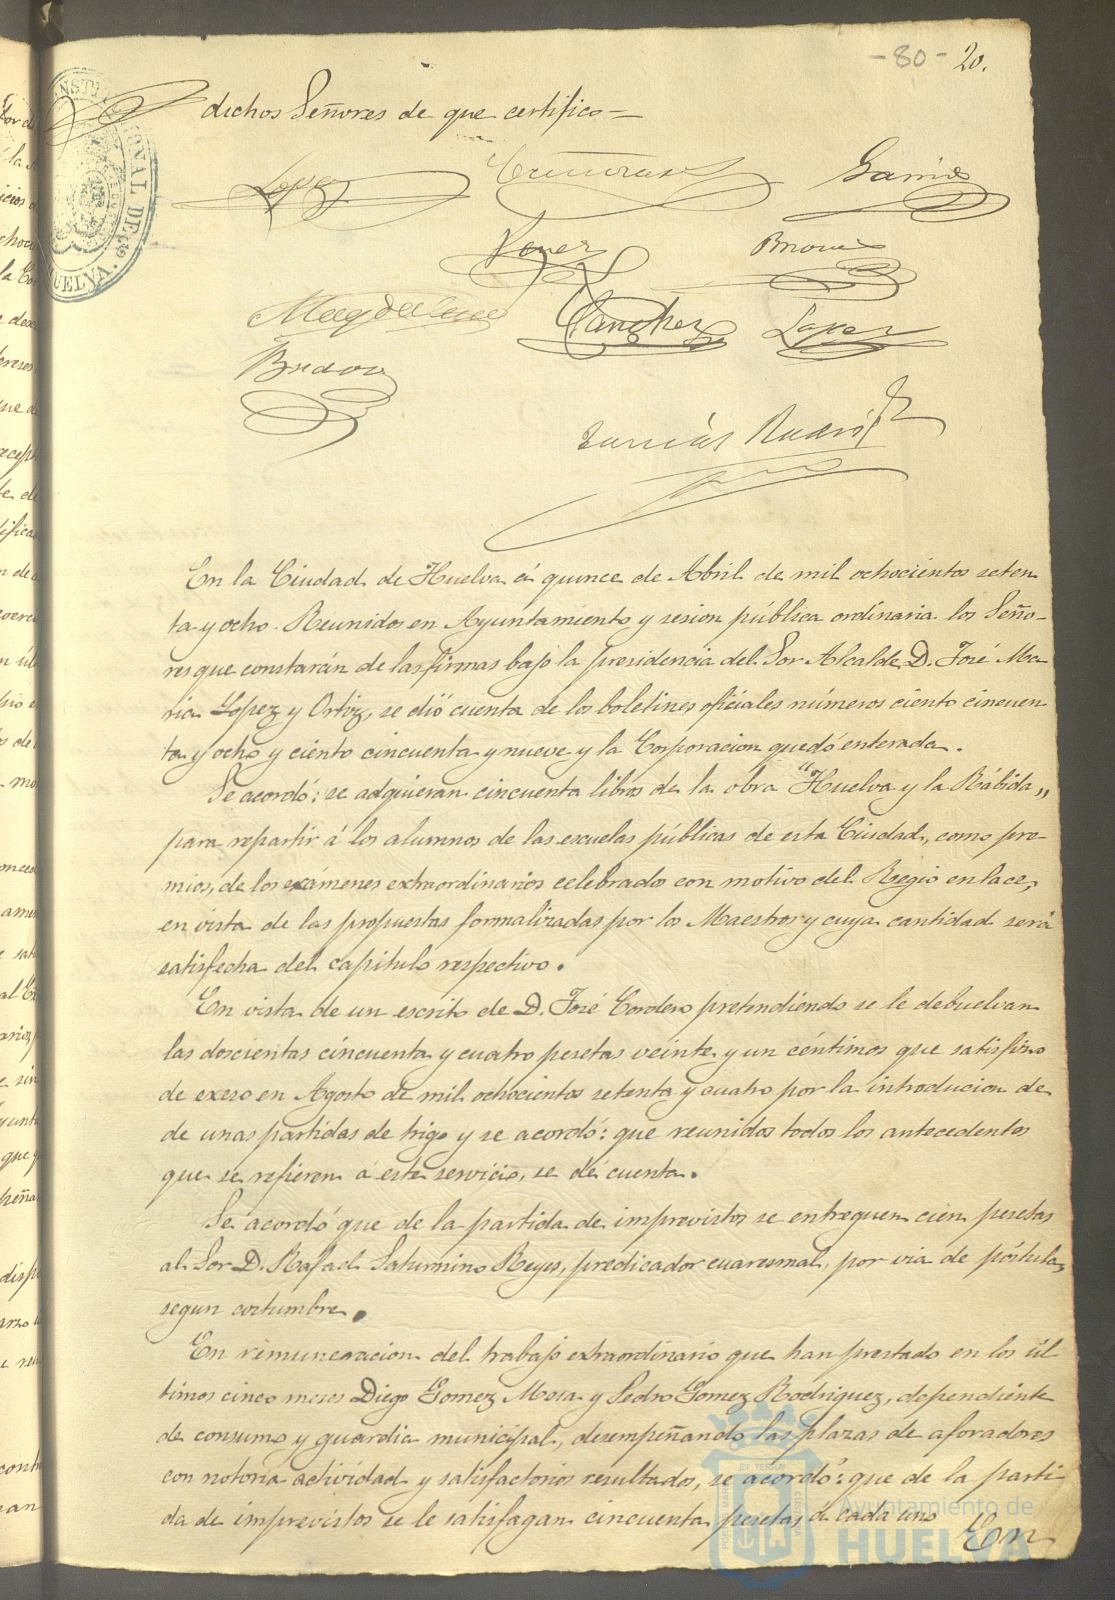 - 80 - 20.
dichos Señores de que certifico =
Lopez
Garrido
Perez
Magdalena
Sanchez
Lopez
En la Ciudad de Huelva á quince de Abril de mil ochocientos seten
ta y ocho. Reunidos en Ayuntamiento y sesion pública ordinaria los Seño-
res que constarán de las firmas bajo la presidencia del Sor Alcalde D. José Ma-
ria Lopez y Ortiz, se dió cuenta de los boletines oficiales números ciento cincuen
ta y ocho y ciento cincuenta y nueve y la Corporacion quedó enterada.
Se acordó: se adquieran cincuenta libros de la obra "Huelva y la Rábida"
para repartir á los alumnos de las escuelas públicas de esta Ciudad, como pre-
mios, de los exámenes extraordinarios celebrado con motivo del Regio enlace,
en vista de las propuestas formalizadas por los Maestros y cuya cantidad será
satisfecha del capitulo respectivo.
En vista de un escrito de D. José Cordero pretendiendo se le debuelvan
las doscientas cincuenta y cuatro pesetas veinte y un céntimos que satisfizo
de exeso en Agosto de mil ochocientos setenta y cuatro por la introducion de
de unas partidas de trigo y se acordó: que reunidos todos los antecedentes
que se refieren á este servicio, se dé cuenta.
Se acordó que de la partida de imprevistos se entreguen cien pesetas
al Sor D. Rafael Saturnino Reyes, predicador cuaresmal, por via de póstula,
segun costumbre.
En remuneracion del trabajo extraordinario que han prestado en los úl
timos cinco meses Diego Gomez Mora y Pedro Gomez Rodriguez, dependiente
de consumo y guardia municipal, desempeñando las plazas de aforadores
con notoria actividad y satisfactorios resultados, se acordó: que de la parti
da de imprevistos se le satisfagan cincuenta pesetas á cada uno
En
Ayuntamiento de
HUELVA